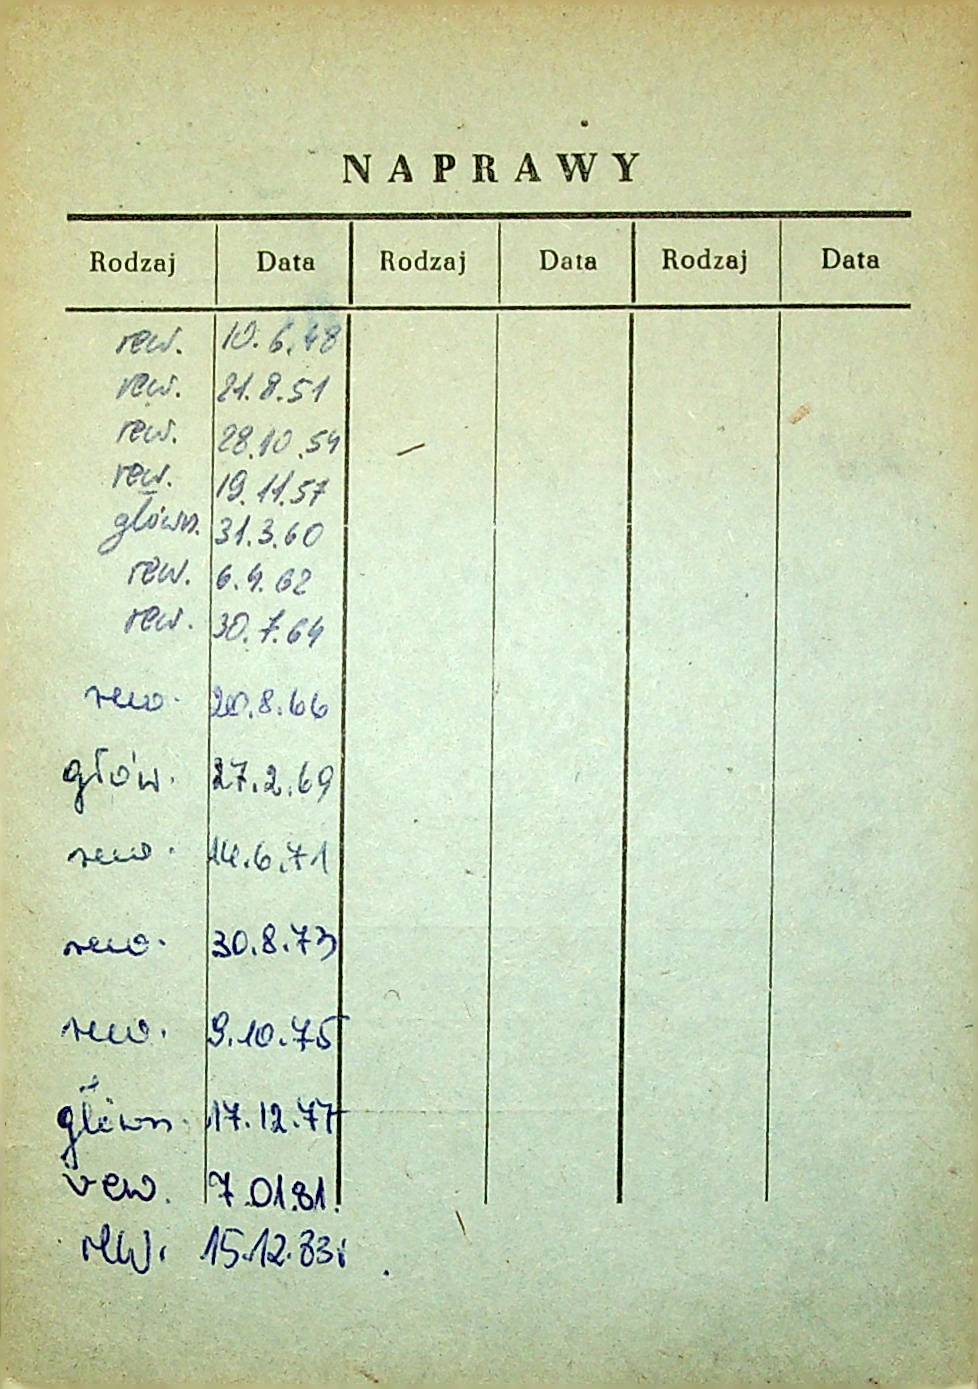 NAPRAWY
Rodzaj Data Rodzaj Data Rodzaj Data
rew. 10.6.48
rew. 21.8.51
rew. 28.10.54
rew. 19.11.57
główn. 31.3.60
rew. 6.4.62
rew. 30.7.64
rew. 20.8.66
głów. 27.2.69
rew. 14.6.71
rew. 30.8.73
rew. 9.10.75
główn. 17.12.77
rew. 7.01.81.
rew. 15.12.83r